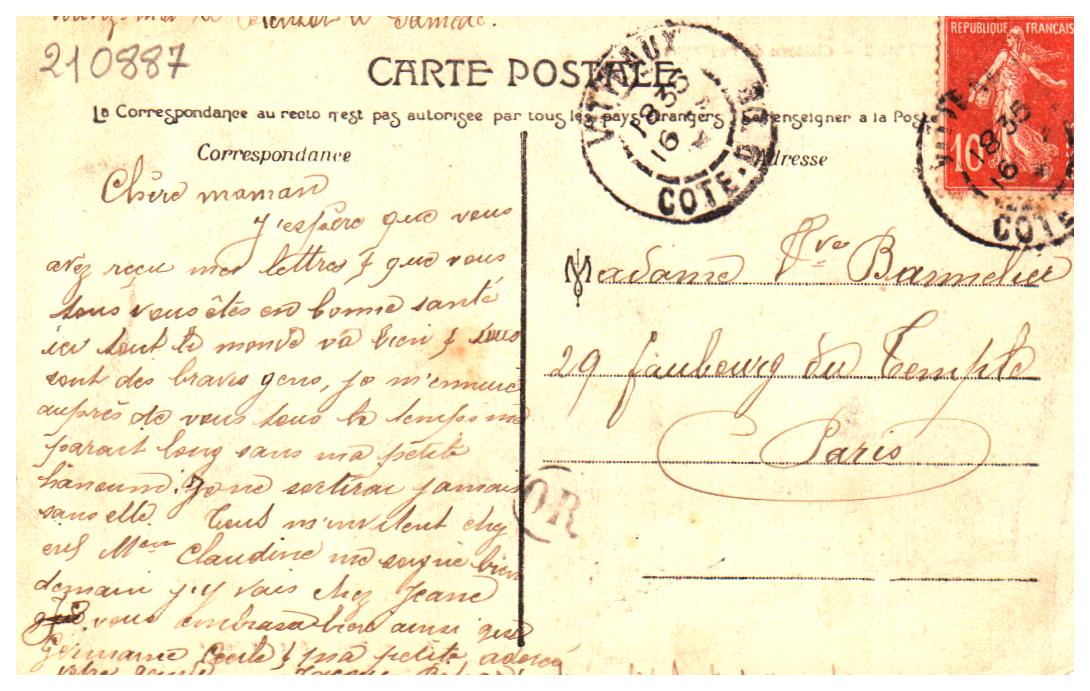 210887
CARTE POSTALE
La Correspondance au recto n'est pas autorisée par tous les pays étrangers Se renseigner a la Poste
Correspondance
Adresse
VITTEAUX
18 35
16
COTE-D'OR
REPUBLIQUE FRANÇAISE
10
18 35
16
COTE
Chère maman
J'espère que vous
avez reçu mes lettres & que vous
tous vous êtes en bonne santé
ici tout le monde va bien & tous
sont des braves gens, je m'ennuie
auprès de vous tous le temps me
parait long sans ma petite
je ne sortirai jamais
sans elle. Tous m'invitent chez
eux Mme Claudine me soigne bien
demain j'y vais chez Jeanne
vous embrasse bien ainsi que
Germaine Cecile & ma petite adorée
Madame Vve Barmelier
29 faubourg du Temple
Paris
OR